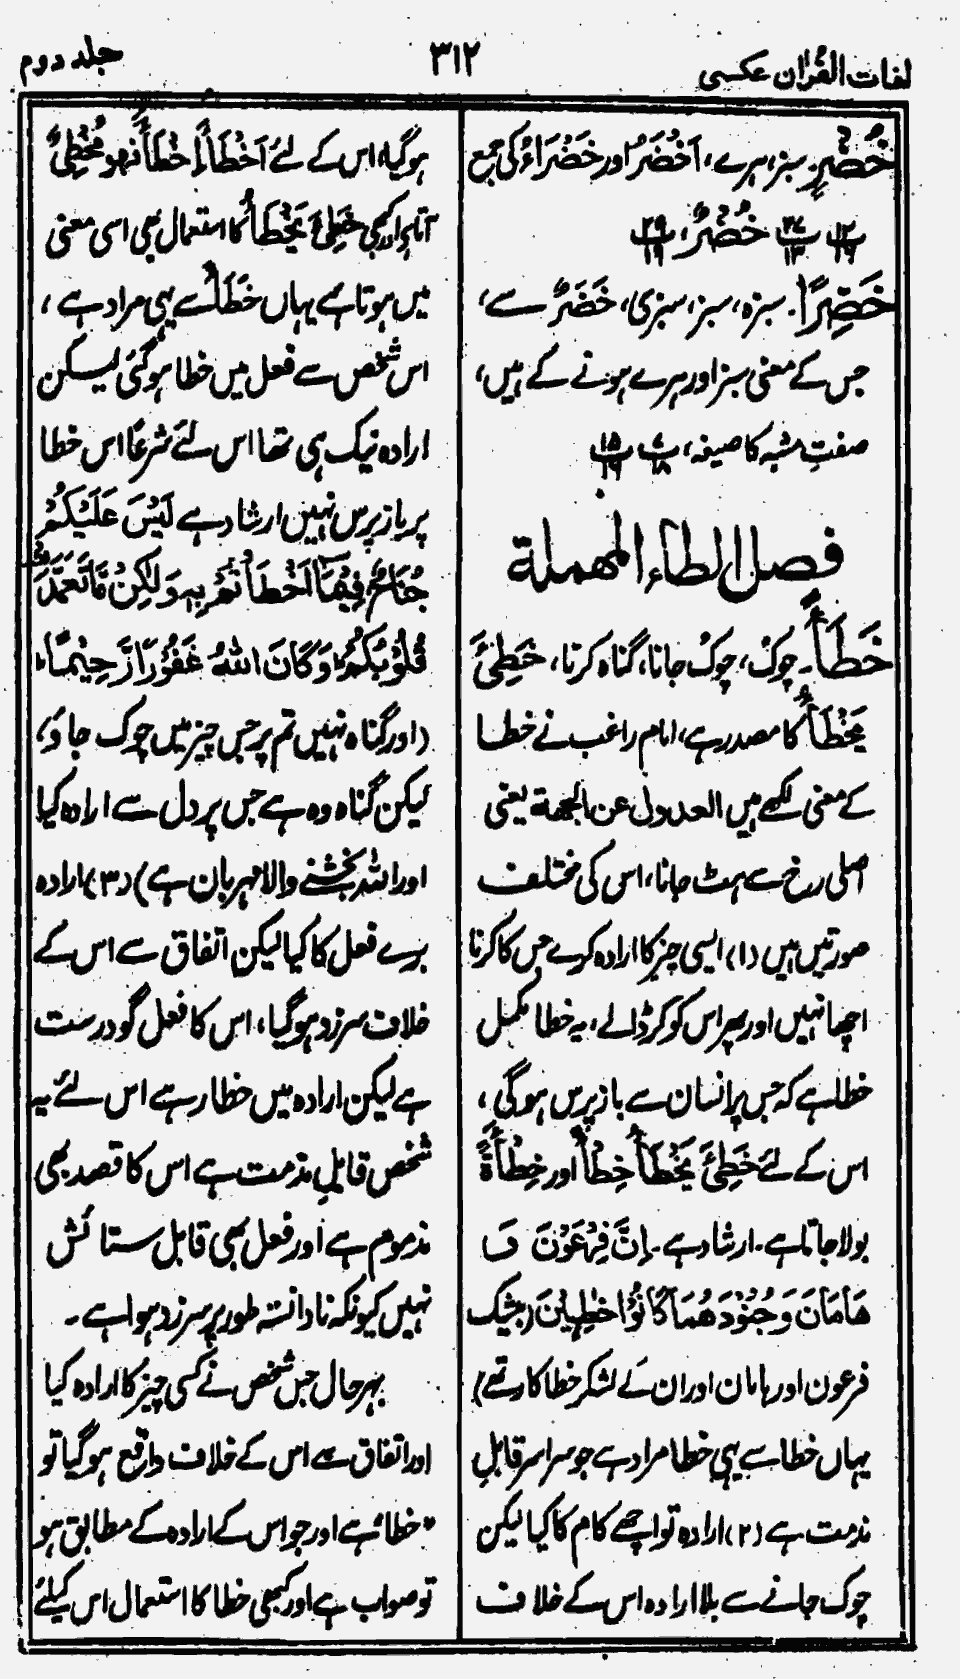 لغات القرآن عکسی
۳۱۲
جلد دوم
خُضْرٍ۔ سبز، ہرے، اَخْضَرُ اور خَضْرَاءُ کی جمع
۱۲/۱۶ پ ۲۷/۱۳ پ خُضْرٌ، ۲۹/۱۹ پ
خَضِرًا۔ سبزہ، سبز، سبزی، خَضَرٌ سے،
جس کے معنی سبز اور ہرے ہونے کے ہیں،
صفتِ مشبہ کا صیغہ، پ ۷/۱۸ پ ۱۵/۱۹
فصل الطاء المهملة
خَطَأً۔ چوک، چوک جانا، گناہ کرنا، خَطِئَ
يَخْطَأُ کا مصدر ہے، امام راغب نے خطا
کے معنی لکھے ہیں العدول عن الجهة یعنی
اصلی رخ سے ہٹ جانا، اس کی مختلف
صورتیں ہیں (۱) ایسی چیز کا ارادہ کرے جس کا کرنا
اچھا نہیں اور پھر اس کو کر ڈالے، یہ خطا مکمل
خطا ہے کہ جس پر انسان سے باز پرس ہوگی،
اس کے لئے خَطِئَ يَخْطَأُ خِطْأً اور خِطْأَةً
بولا جاتا ہے۔ ارشاد ہے۔ اِنَّ فِرْعَوْنَ وَ
هَامَانَ وَجُنُوْدَهُمَا كَانُوْا خٰطِئِيْنَ (بیشک
فرعون اور ہامان اور ان کے لشکر خطا کار تھے)
یہاں خطا سے یہی خطا مراد ہے جو سراسر قابلِ
مذمت ہے (۲) ارادہ تو اچھے کام کا کیا لیکن
چوک جانے سے بلا ارادہ اس کے خلاف
ہو گیا، اس کے لئے اَخْطَأَ اِخْطَأً فهو مُخْطِئٌ
آتا ہے اور کبھی خَطِئَ يَخْطَأُ کا استعمال بھی اسی معنی
میں ہوتا ہے یہاں خَطَأً سے یہی مراد ہے،
اس شخص سے فعل میں خطا ہو گئی لیکن
ارادہ نیک ہی تھا اس لئے شرعًا اس خطا
پر باز پرس نہیں ارشاد ہے لَيْسَ عَلَيْكُمْ
جُنَاحٌ فِيْمَا اَخْطَأْتُمْ بِهٖ وَلٰكِنْ مَّا تَعَمَّدَتْ
قُلُوْبُكُمْ وَكَانَ اللّٰهُ غَفُوْرًا رَّحِيْمًا
(اور گناہ نہیں تم پر جس چیز میں چوک جاؤ،
لیکن گناہ وہ ہے جس پر دل سے ارادہ کیا
اور اللہ بخشنے والا مہربان ہے) (۳) ارادہ
برے فعل کا کیا لیکن اتفاق سے اس کے
خلاف سرزد ہو گیا، اس کا فعل گو درست
ہے لیکن ارادہ میں خطا رہے اس لئے یہ
شخص قابلِ مذمت ہے اس کا قصد بھی
مذموم ہے اور فعل بھی قابل ستائش
نہیں کیونکہ نادانستہ طور پر سرزد ہوا ہے۔
بہر حال جس شخص نے کسی چیز کا ارادہ کیا
اور اتفاق سے اس کے خلاف واقع ہو گیا تو
"خطا" ہے اور جو اس کے ارادہ کے مطابق ہو
تو صواب ہے اور کبھی خطا کا استعمال اس کیلئے